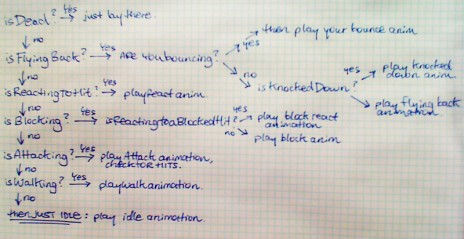 isDead? yes → just lay there.
↓ no
isFlyingBack? yes → ARE you bouncing? yes → then play your bounce anim
↓ no
no → isKnockedDown? yes → play knocked down anim.
→ play flying back animation.
isReactingToHit? yes → play react anim.
↓ no
isBlocking? yes → isReactingtoaBlockedHit? yes → play block react animation
no → play block anim
↓ no
isAttacking? yes → play Attack animation,
check for HITS.
↓ no
isWalking? yes → play walk animation.
↓ no
then JUST IDLE: play idle animation.